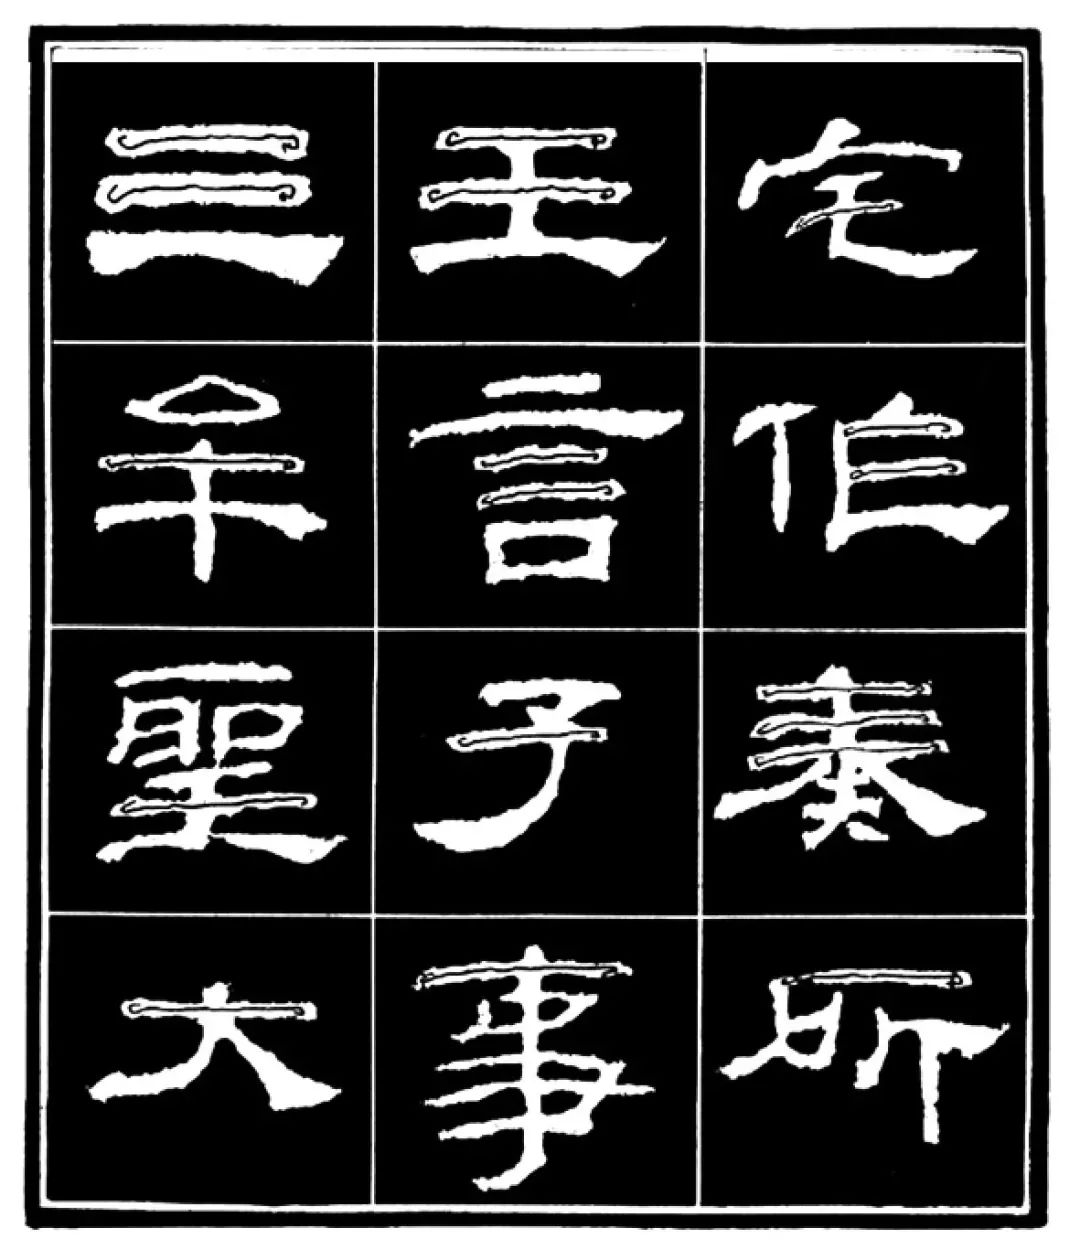 三王宅
牟言作
聖子奏
大事所